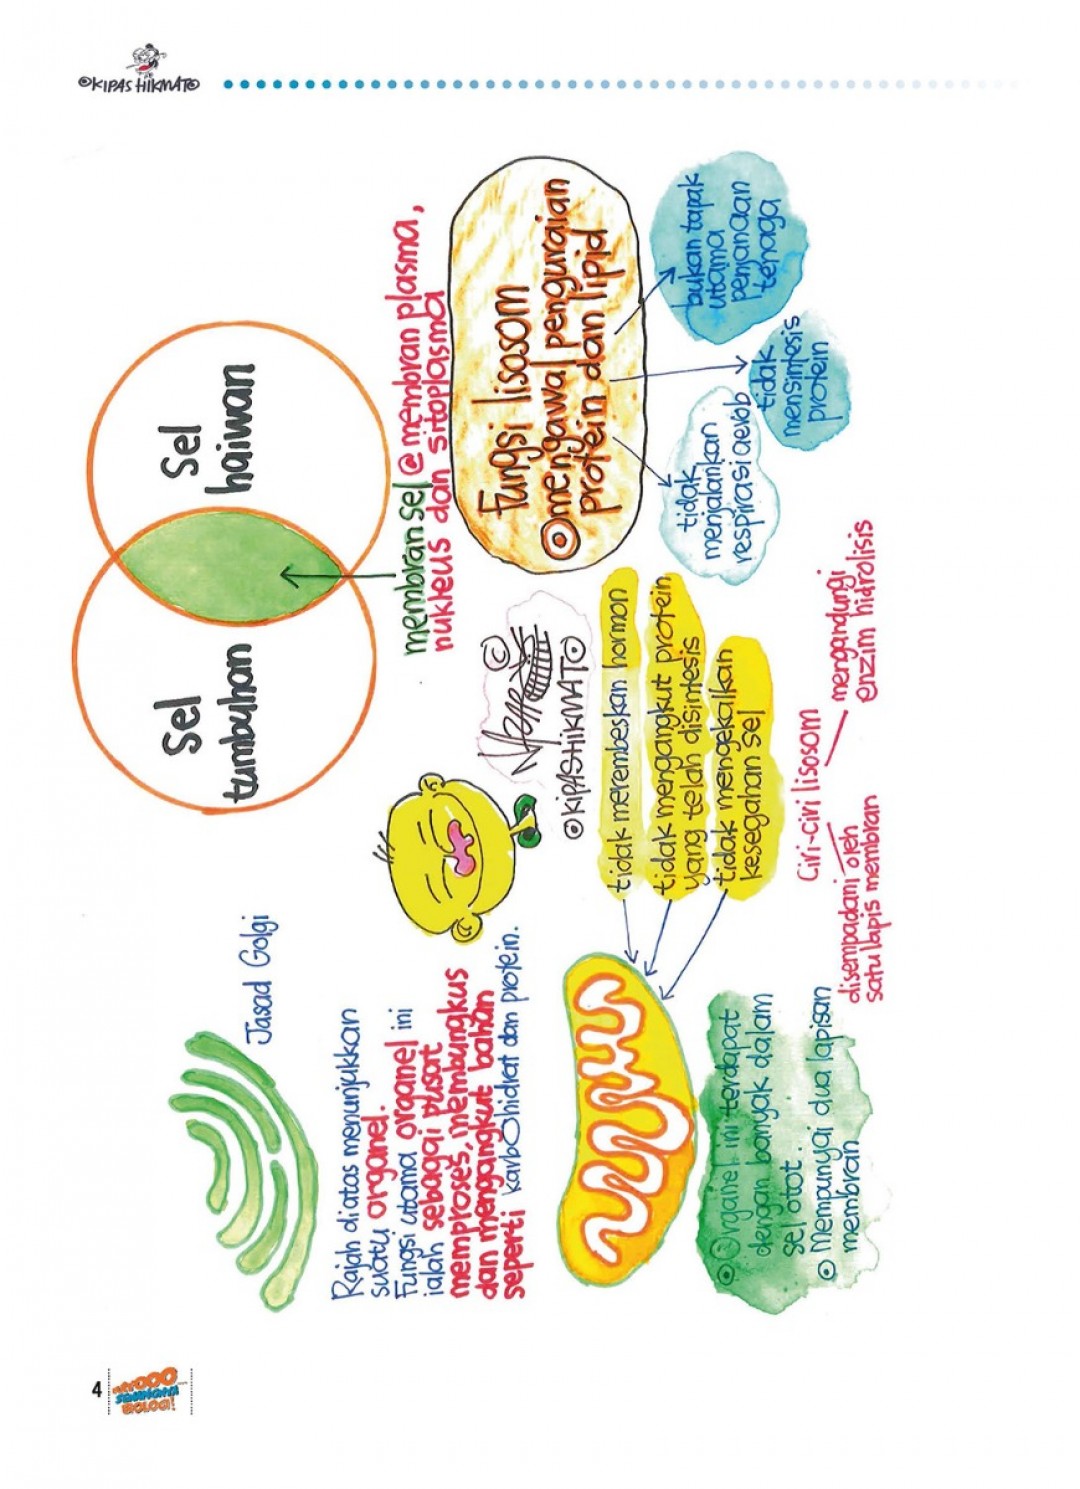 ©KIPAS HIKMATO
Jasad Golgi
Rajah diatas menunjukkan
suatu organel.
Fungsi utama organel ini
ialah sebagai pusat
memproses, membungkus
dan mengangkut bahan
seperti karbohidrat dan protein.
Sel
tumbuhan
Sel
haiwan
membran sel @ membran plasma,
nukleus dan sitoplasma
©
©KIPASHIKMATO
Fungsi lisosom
mengawal penguraian
protein dan lipid
bukan tapak
utama
penjanaan
tenaga
tidak
mensintesis
protein
tidak
menjalankan
respirasi aerob
tidak merembeskan hormon
tidak mengangkut protein
yang telah disintesis
tidak mengekalkan
kesegahan sel
Organel ini terdapat
dengan banyak dalam
sel otot.
Mempunyai dua lapisan
membran
Ciri-ciri lisosom
disempadani oleh
satu lapis membran
mengandungi
enzim hidrolisis
4
BIOLOGI!